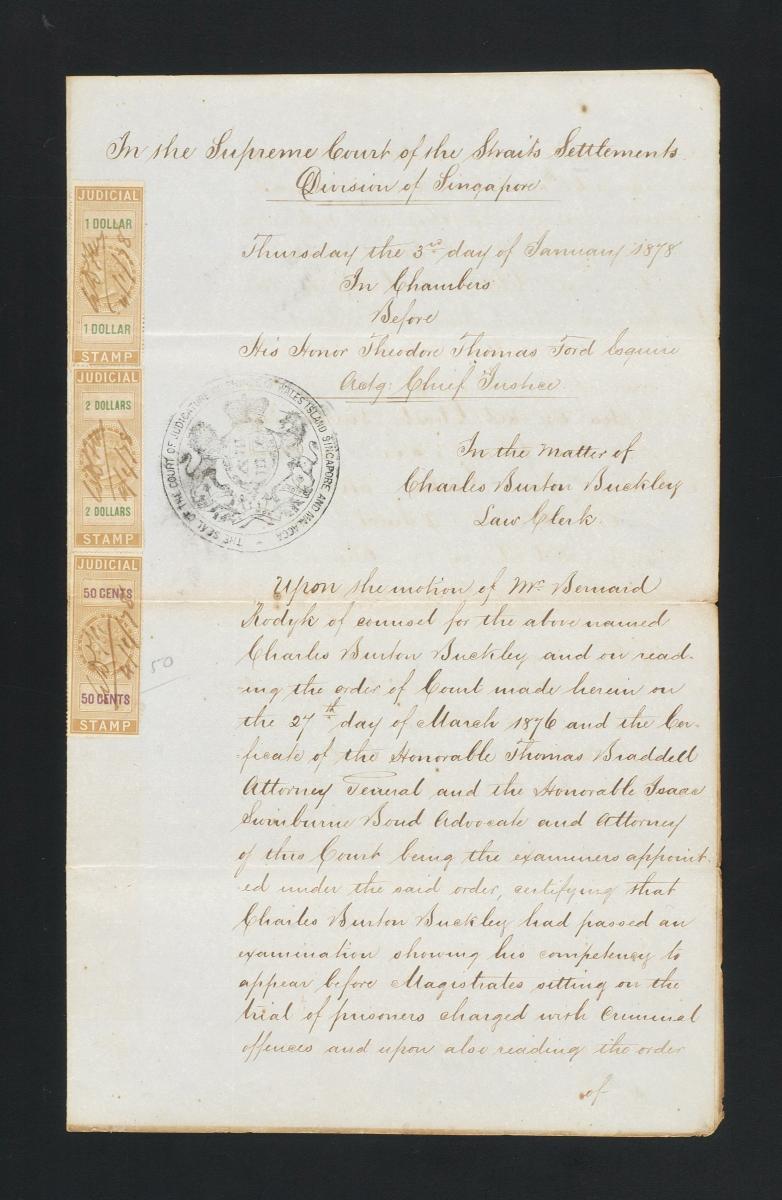 In the Supreme Court of the Straits Settlements
Division of Singapore
Thursday the 3rd day of January 1878
In Chambers
Before
His Honor Theodore Thomas Ford Esquire
Actg: Chief Justice
In the Matter of
Charles Burton Buckley
Law Clerk.
Upon the motion of Mr Bernard
Rodyk of counsel for the above named
Charles Burton Buckley and on read-
-ing the order of Court made herein on
the 27th day of March 1876 and the Cer-
-ficate of the Honorable Thomas Braddell
Attorney General and the Honorable Isaac
Swinburne Bond Advocate and Attorney
of this Court being the examiners appoint-
-ed under the said order, certifying that
Charles Burton Buckley had passed an
examination showing his competency to
appear before Magistrates sitting on the
trial of prisoners charged with Criminal
offences and upon also reading the order
of
JUDICIAL
1 DOLLAR
1 DOLLAR
STAMP
JUDICIAL
2 DOLLARS
2 DOLLARS
STAMP
JUDICIAL
50 CENTS
50 CENTS
STAMP
50
THE SEAL OF THE COURT OF JUDICATURE OF PRINCE OF WALES ISLAND SINGAPORE AND MALACCA